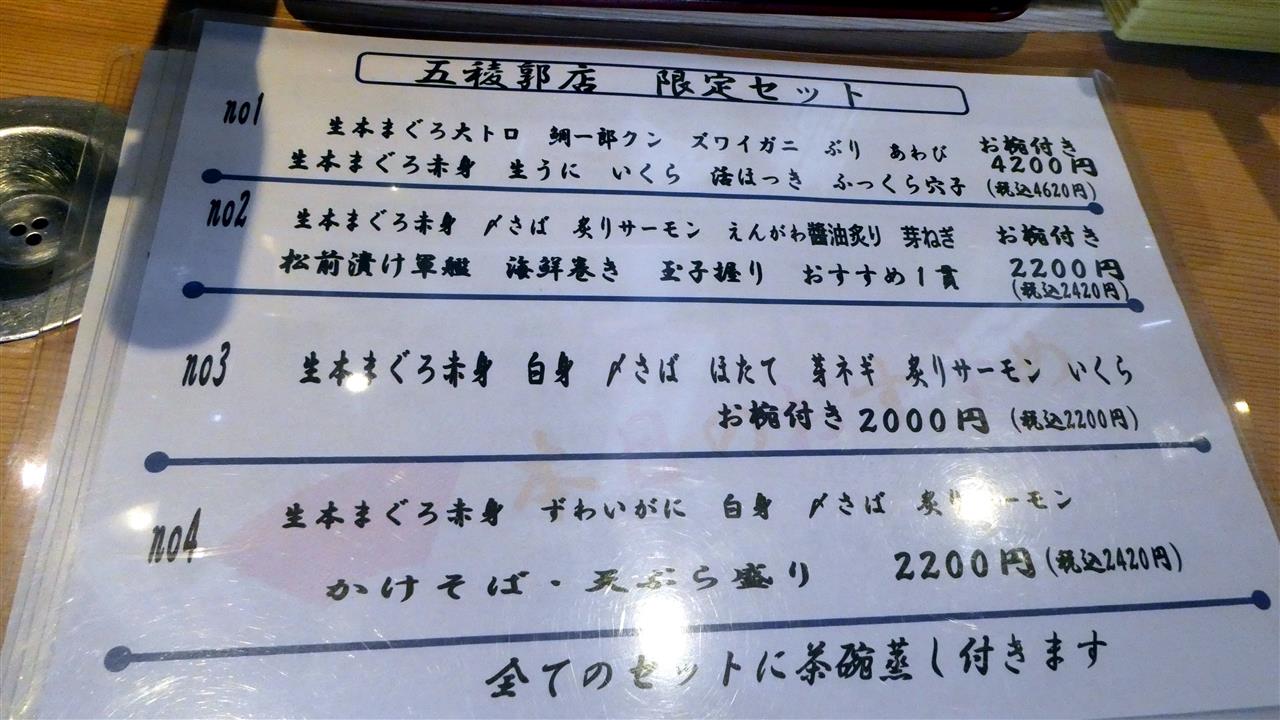 五稜郭店 限定セット
no1
生本まぐろ大トロ 鯛一郎クン ズワイガニ ぶり あわび お椀付き
生本まぐろ赤身 生うに いくら 活ほっき ふっくら穴子 4200円
(税込4620円)
no2
生本まぐろ赤身 〆さば 炙りサーモン えんがわ醬油炙り 芽ねぎ お椀付き
松前漬け軍艦 海鮮巻き 玉子握り おすすめ1貫 2200円
(税込2420円)
no3 生本まぐろ赤身 白身 〆さば ほたて 芽ネギ 炙りサーモン いくら
お椀付き 2000円 (税込2200円)
no4
生本まぐろ赤身 ずわいがに 白身 〆さば 炙りサーモン
かけそば・天ぷら盛り 2200円 (税込2420円)
全てのセットに茶碗蒸し付きます